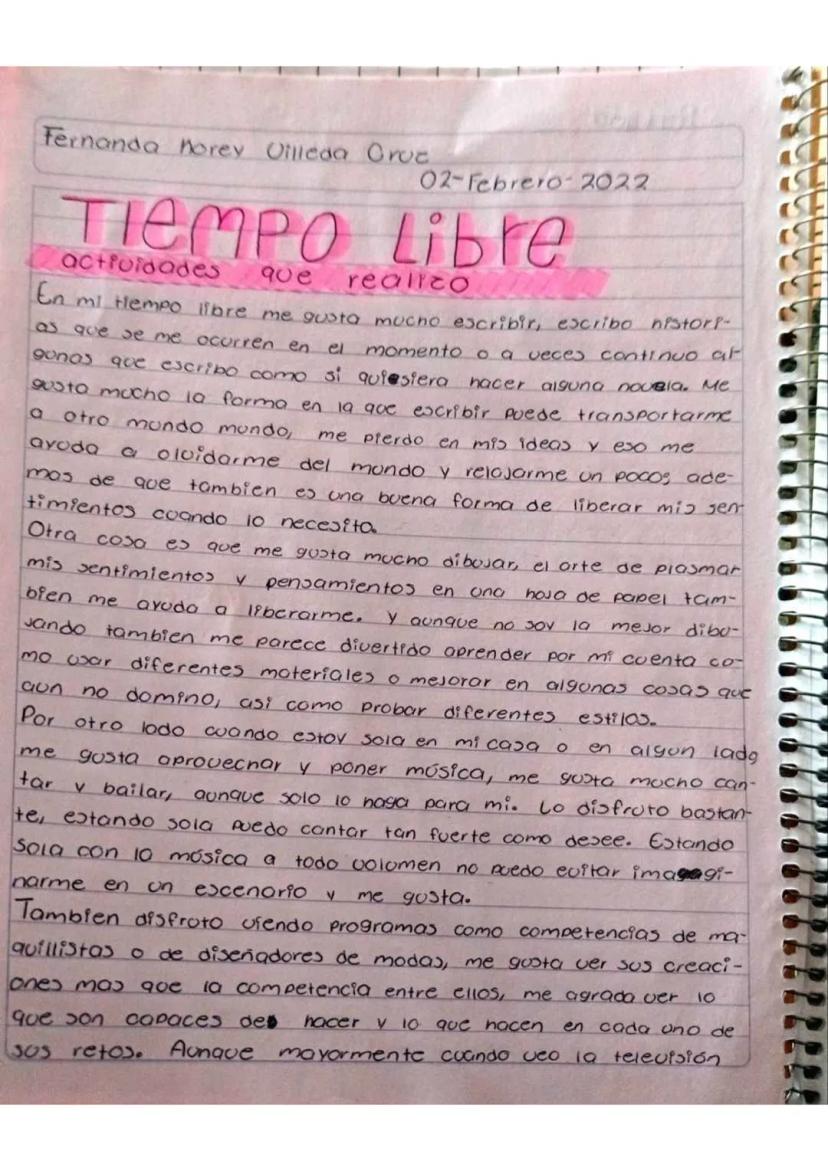 Fernanda Norev Villeda Cruz
02-Febrero-2022
TIEMPO Libre
actividades que realizo
En mi tiempo libre me gusta mucho escribir, escribo histori-
as que se me ocurren en el momento o a veces continuo al-
gunas que escribo como si quisiera hacer alguna novela. Me
gusta mucho la forma en la que escribir puede transportarme
a otro mundo mundo, me pierdo en mis ideas y eso me
ayuda a olvidarme del mundo y relajarme un poco, ade-
mas de que tambien es una buena forma de liberar mis sen-
timientos cuando lo necesita.
Otra cosa es que me gusta mucho dibujar, el arte de plasmar
mis sentimientos y pensamientos en una hoja de papel tam-
bien me ayuda a liberarme. y aunque no soy la mejor dibu-
jando tambien me parece divertido aprender por mi cuenta co-
mo usar diferentes materiales o mejorar en algunas cosas que
aun no domino, asi como probar diferentes estilos.
Por otro lado cuando estoy sola en mi casa o en algun lado
me gusta aprovechar y poner música, me gusta mucho can-
tar y bailar, aunque solo lo haga para mi. Lo disfruto bastan-
te, estando sola puedo cantar tan fuerte como desee. Estando
sola con la música a todo volumen no puedo evitar imagi-
narme en un escenario y me gusta.
Tambien disfruto viendo programas como competencias de ma-
quillistas o de diseñadores de modas, me gusta ver sus creaci-
ones mas que la competencia entre ellos, me agrada ver lo
que son capaces de hacer y lo que hacen en cada uno de
sus retos. Aunque mayormente cuando veo la televisión